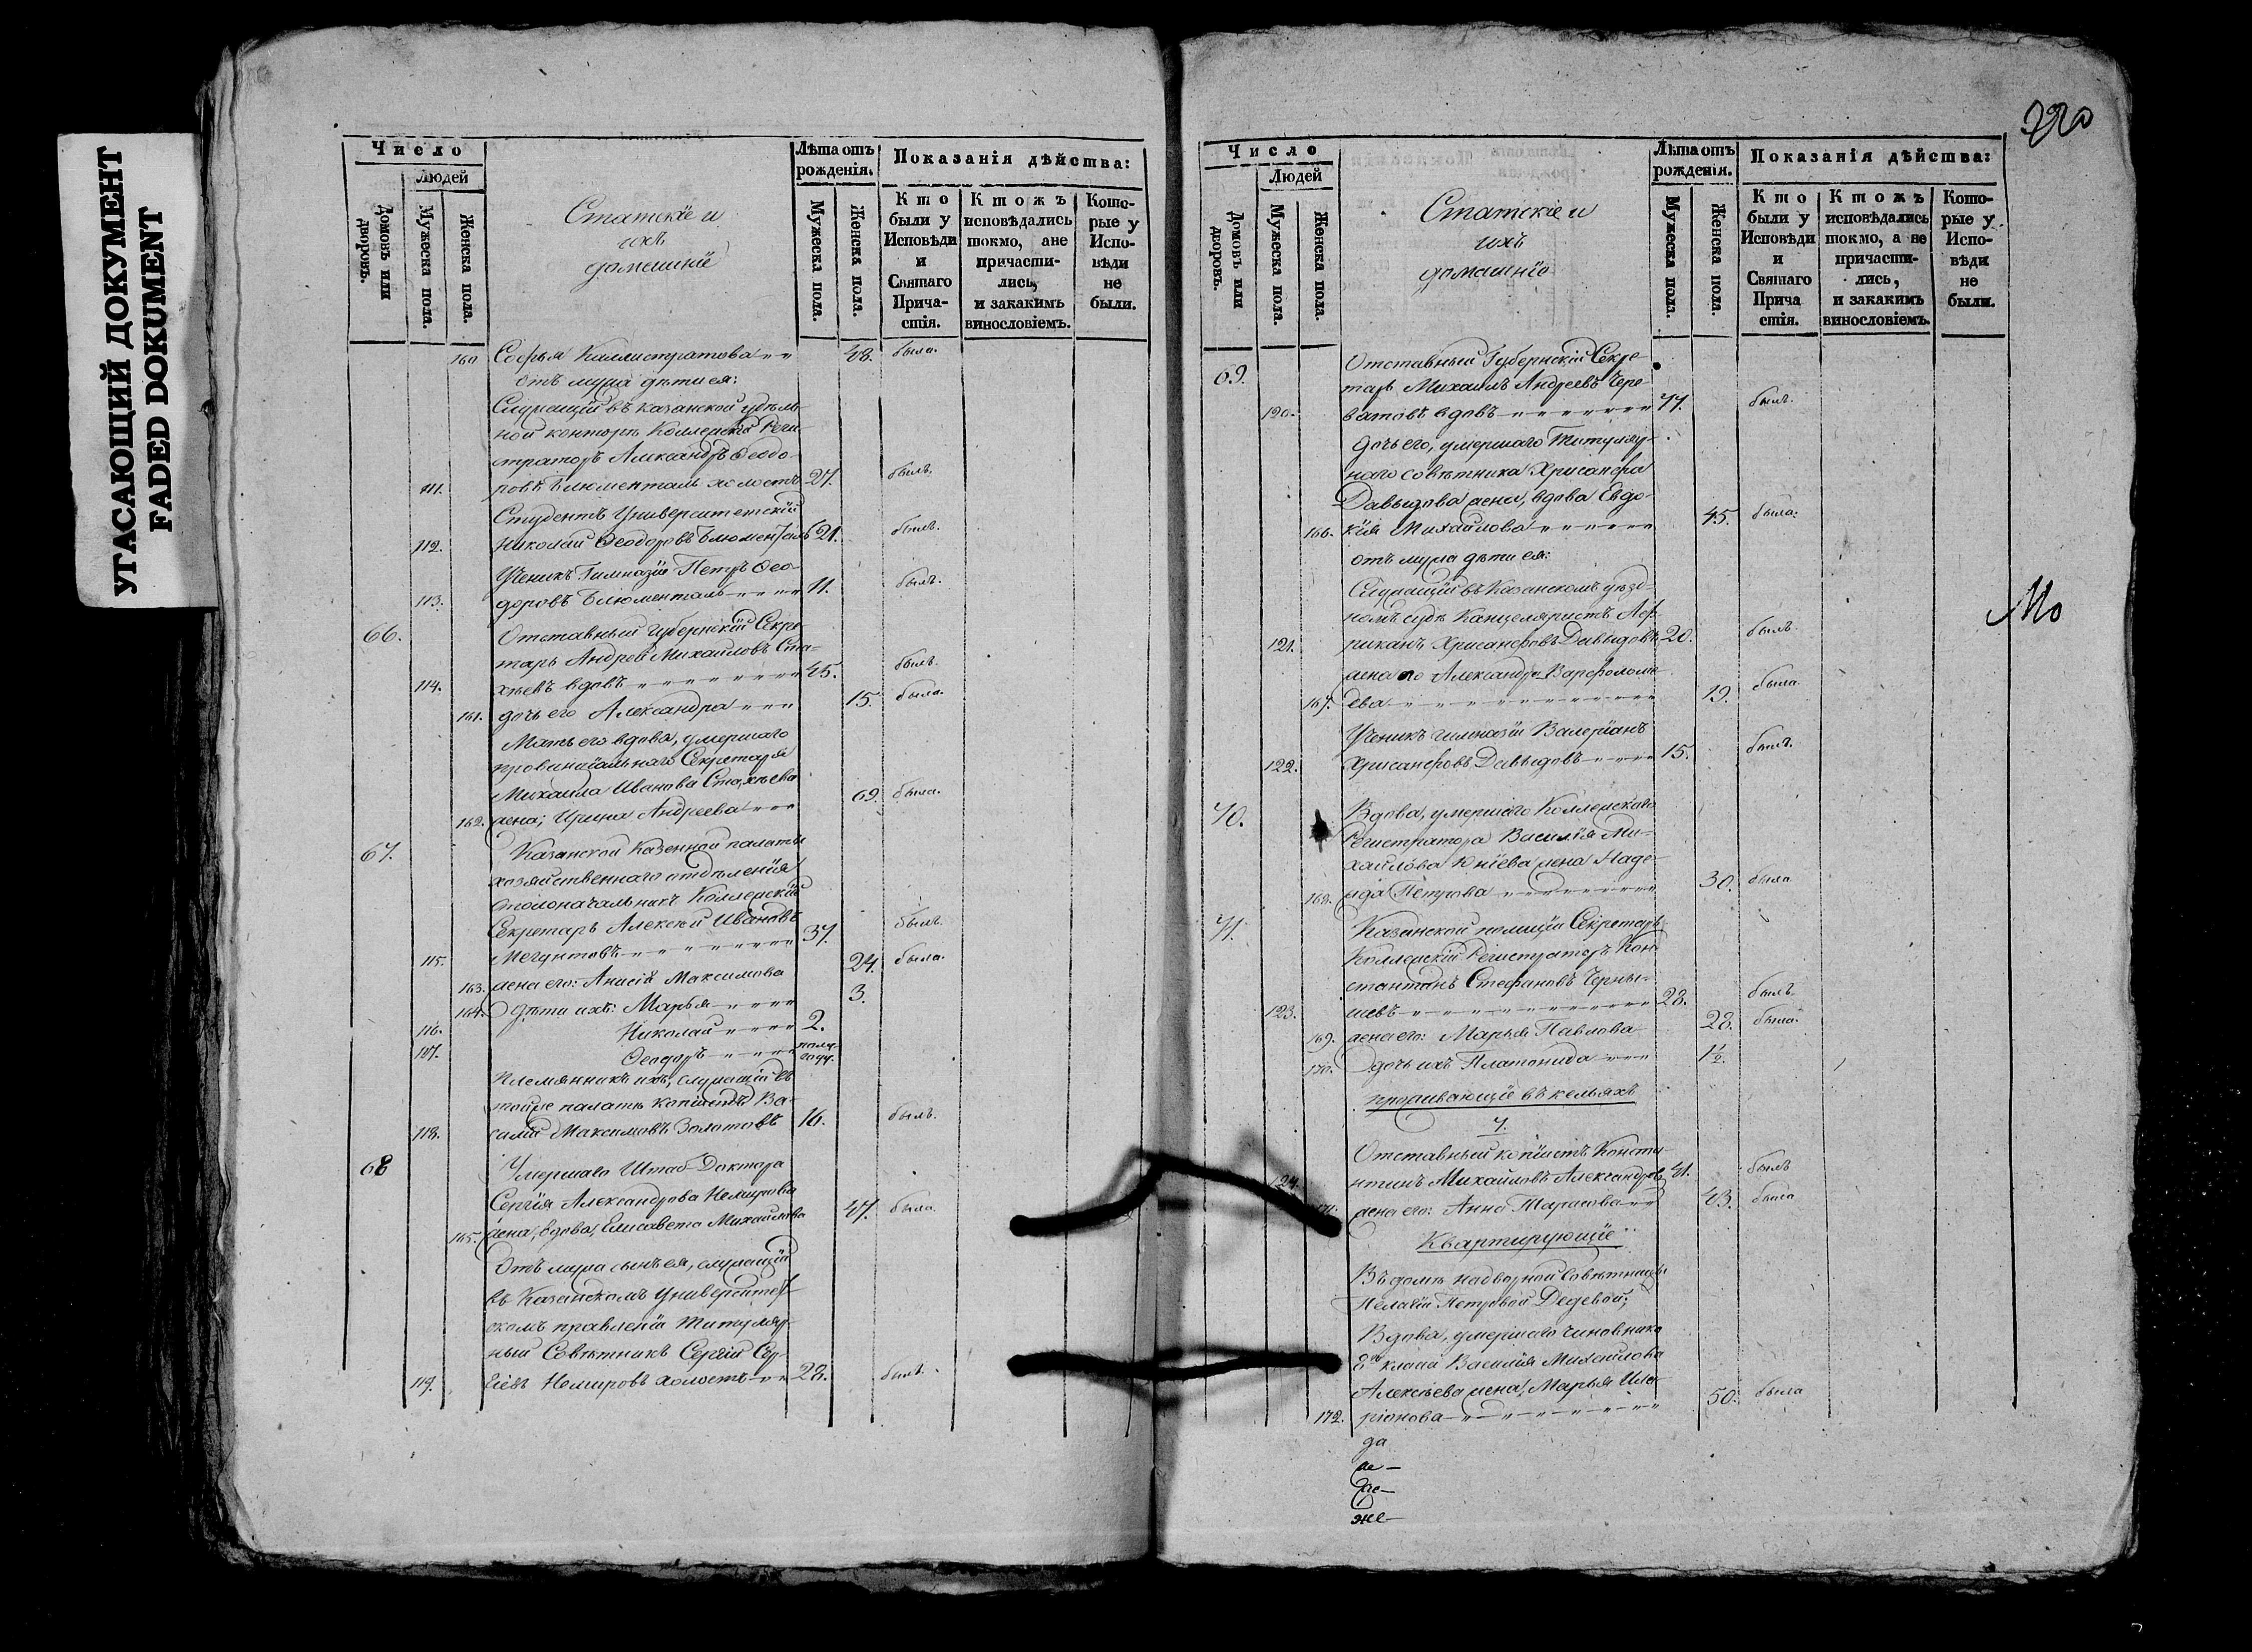 УГАСАЮЩИЙ ДОКУМЕНТ
FADED DOKUMENT
Число
Людей
Домовъ или дворовъ.
Мужеска пола.
Женска пола.
Статскіе и
ихъ
домашніе
Лѣта отъ рожденія.
Мужеска пола.
Женска пола.
Показанія дѣйства:
Кто были у Исповѣди и Святаго Прича-стія.
Ктожъ исповѣдались токмо, ане причасти-лись, и закакимъ винословіемъ.
Кото-рые у Испо-вѣди не были.
160 Софья Каллистратова 48. была.
отъ мужа дѣти ея:
Служащій въ казанской удѣль-
ной конторѣ Коллежскій Реги-
страторъ Александръ Ѳеодо-
111. ровъ Блюменталь холостъ 27. былъ.
Студентъ Университетскій
112. Николай Ѳеодоровъ Блюменталь 21. былъ.
Ученикъ Гимназіи Петръ Ѳео-
113. доровъ Блюменталь 11. былъ.
66. Отставный Губернскій Секре-
тарь Андрей Михайловъ Ста-
114. хѣевъ вдовъ 45. былъ.
161. дочь его Александра 15. была.
Мать его вдова, умершаго
провинціальнаго Секретаря
Михаила Иванова Стахѣева
162. жена; Ирина Андреева 69. была.
67. Казанской Казенной палаты
хозяйственнаго отдѣленія
столоначальникъ Коллежскій
Секретарь Алексѣй Ивановъ
115. 37. былъ.
163. жена его: Анисія Максимова 24. была.
164. дѣти ихъ: Марья 3.
116. Николай 2.
117. Ѳеодоръ полу году.
племянникъ ихъ, служащій въ
тойже палатѣ копіистъ Ва-
118. силій Максимовъ Золотовъ 16. былъ.
68 Умершаго Штаб-Доктора
Сергія Александрова Немирова
165. жена, вдова, Елисавета Михайлова 47. была.
Отъ мужа сынъ ея, служащій
въ Казанскомъ Университет-
скомъ правленіи Титуляр-
ный Совѣтникъ Сергій Сер-
119. гіевъ Немировъ холостъ 28. былъ.
220
Число
Людей
Домовъ или дворовъ.
Мужеска пола.
Женска пола.
Статскіе и
ихъ
домашніе
Лѣта отъ рожденія.
Мужеска пола.
Женска пола.
Показанія дѣйства:
Кто были у Исповѣди и Святаго Прича стія.
Ктожъ исповѣдались токмо, а не причасти-лись, и закакимъ винословіемъ.
Кото-рые у Испо-вѣди не были.
69. Отставный Губернскій Секре-
тарь Михаилъ Андреевъ Чере-
120. ватовъ вдовъ 77. былъ.
дочь его, умершаго Титуляр-
наго совѣтника Хрисанфа
Давыдова жена, вдова Евдо-
166. кія Михайлова 45. была:
отъ мужа дѣти ея:
Служащій въ Казанскомъ уѣзд-
номъ судѣ Канцеляристъ Аф-
121. риканъ Хрисанфовъ Давыдовъ 20. былъ.
жена его Александра Варфоломе-
167. ева 19. была.
Ученикъ гимназіи Валеріанъ
122. Хрисанфовъ Давыдовъ 15. былъ.
70. Вдова, умершаго Коллежскаго
Регистратора Василія Ми-
хайлова Кніева жена Наде-
168. жда Петрова 30. была
71. Казанской полиціи Секретарь
Коллежскій Регистраторъ Кон-
стантинъ Стефановъ Черны-
123. шевъ 28. былъ.
169. жена его: Марья Павлова 28. была.
170. дочь ихъ Платонида 1½.
проживающіе въ кельяхъ
7.
Отставный копіистъ Конста-
124. нтинъ Михайловъ Александровъ 41. былъ
171. жена его: Анна Тарасова 43. была
Квартирующіе
Въ домѣ надворной Совѣтницы
Пелагіи Петровой Дедевой;
Вдова, умершаго чиновника
8го класса Василія Михайлова
Алексѣева жена, Марья Ила-
172. ріонова 50. была
Мо
да
же-
же-
же-